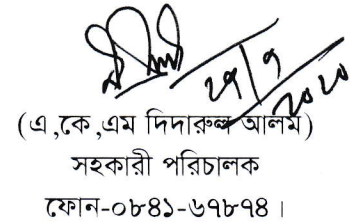 ২৭/৭/২০২০
(এ,কে,এম দিদারুল আলম)
সহকারী পরিচালক
ফোন-০৮৪১-৬৭৮৭৪।